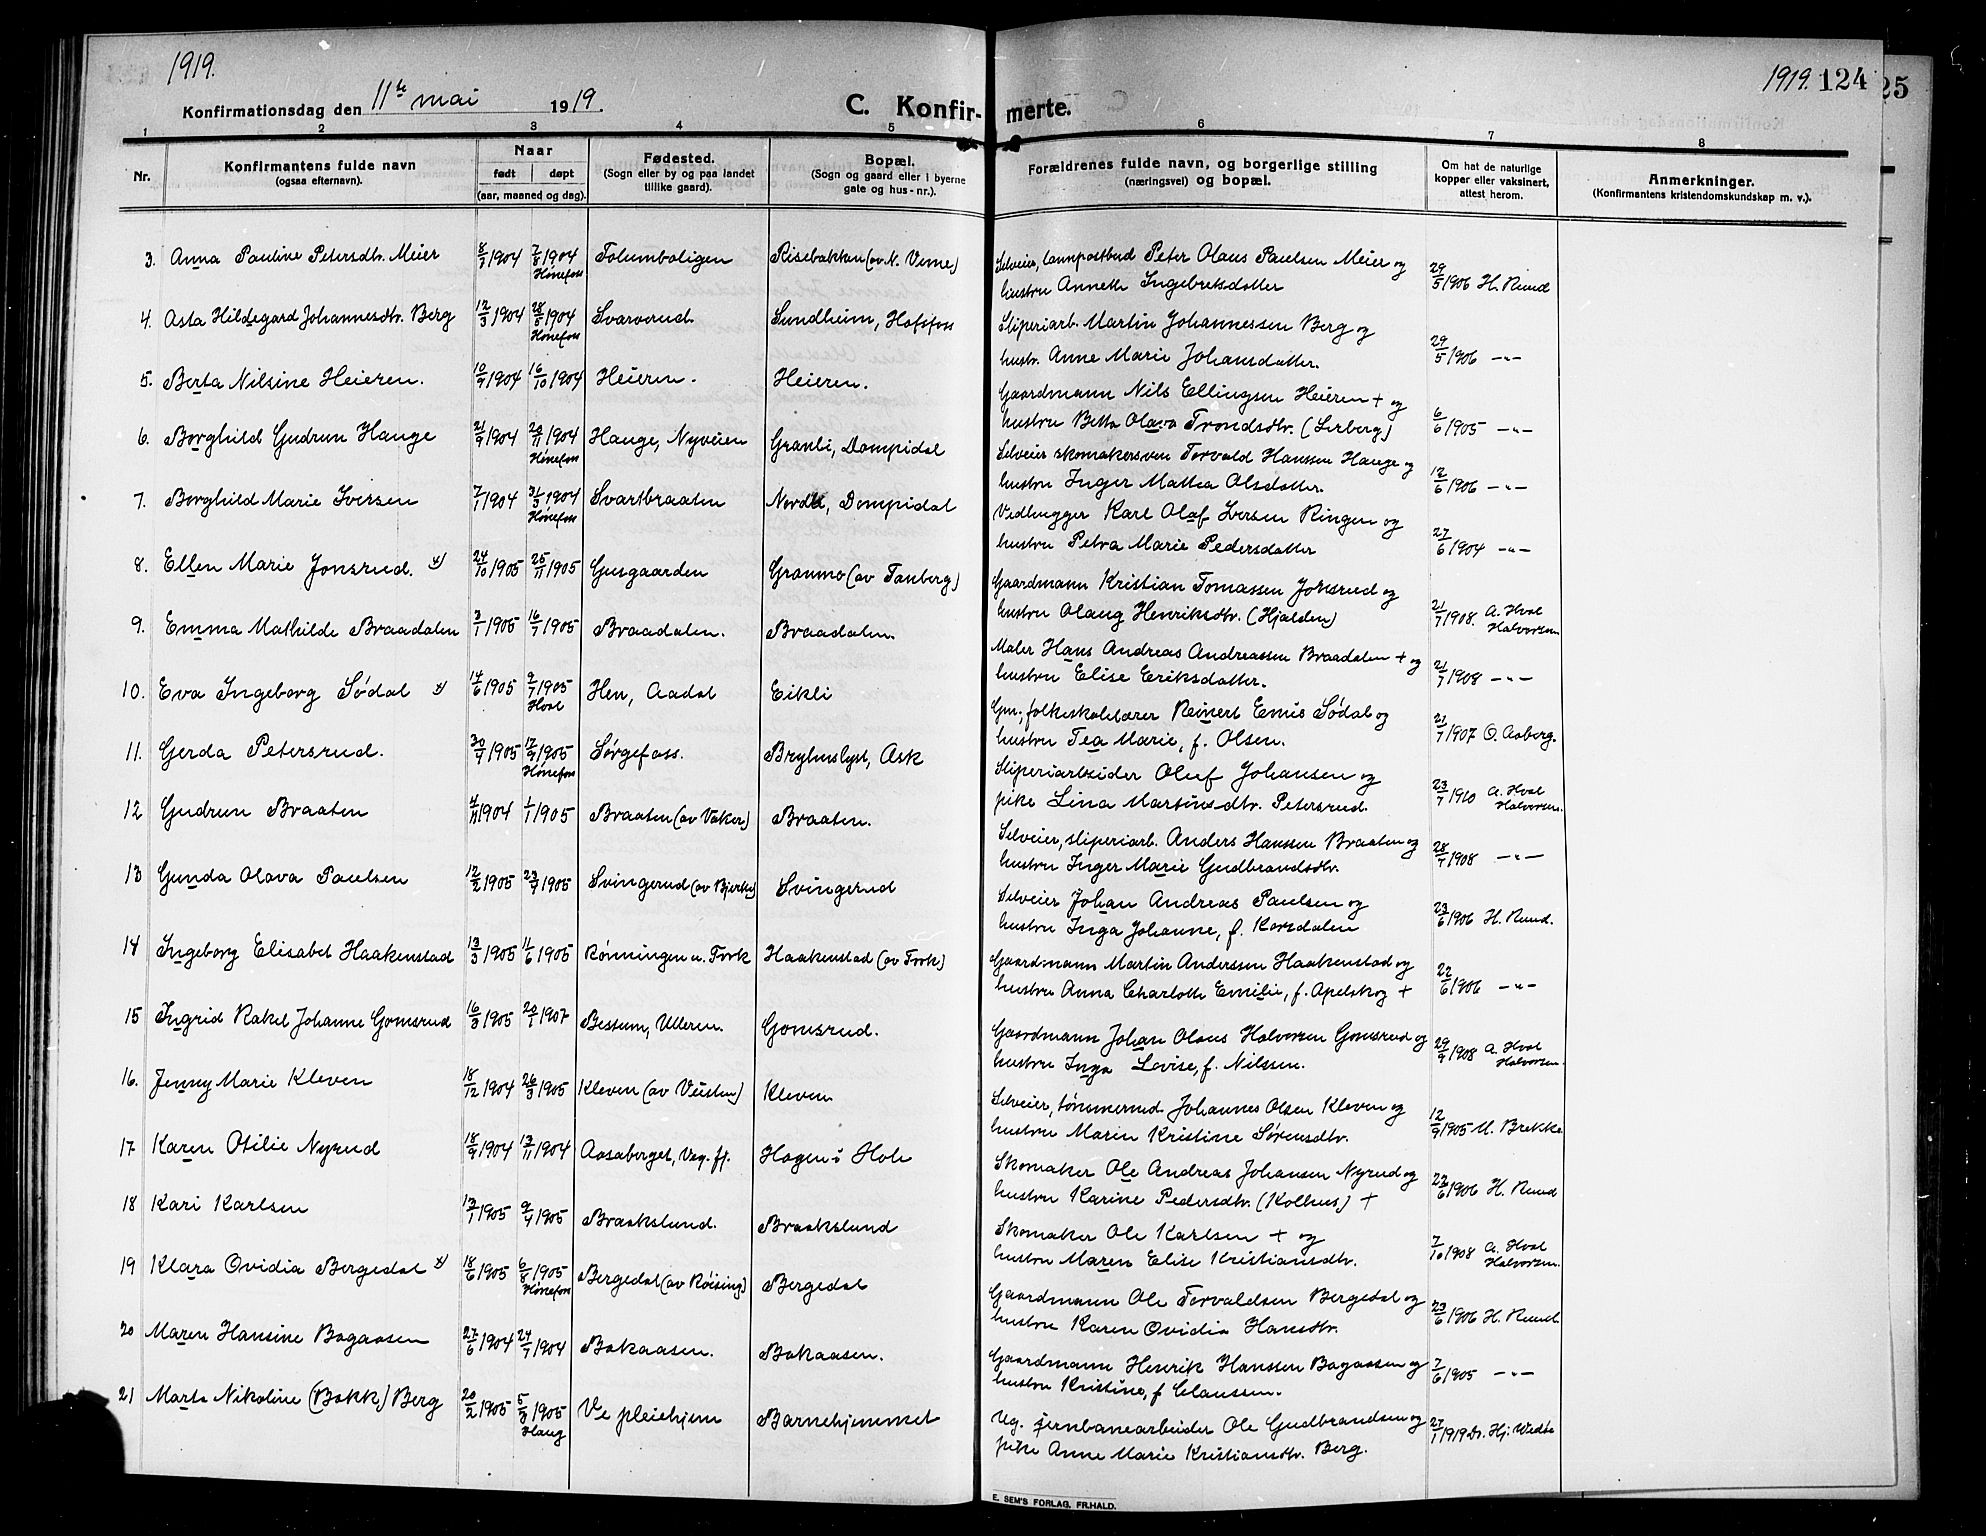 1919.
Konfirmationsdag den 11te mai 1919.
C. Konfir-merte.
1919. 124 25
1 2 3 4 5 6 7 8
Nr.
Konfirmantens fulde navn
(ogsaa efternavn).
Naar
født døpt
(aar, maaned og dag).
Fødested.
(Sogn eller by og paa landet
tillike gaard).
Bopæl.
(Sogn og gaard eller i byerne
gate og hus-nr.).
Forældrenes fulde navn, og borgerlige stilling
(næringsvei) og bopæl.
Om hat de naturlige
kopper eller vaksinert,
attest herom.
Anmerkninger.
(Konfirmantens kristendomskundskap m. v.).
3. Anna Pauline Petersdtr. Meier 8/7 1904 7/8 1904 Hønefoss Tolumboligen Risebakken (av N. Veme) Selveier, landpostbud Peter Olaus Paulsen Meier og
hustru Annethe Ingebretsdatter 29/5 1906 H. Ruud
4. Asta Hildegard Johannesdtr. Berg 12/3 1904 28/5 1904 Hønefoss Svarverud. Sundheim, Hofsfoss Sliperiarb. Martin Johannessen Berg og
hustr. Anne Marie Johansdatter. 29/5 1906 -"-
5. Berta Nilsine Heieren. 10/9 1904 16/10 1904 Heieren. Heieren. Gaardmann Nils Ellingsen Heieren + og
hustru Betta Olava Trondsdtr. (Lerberg) 6/6 1905 -"-
6. Borghild Gudrun Hauge 21/9 1904 20/11 1904 Hønefoss Hauge, Nyveien Granli, Dompidal Selveier skomakersven Torvald Hanssen Hauge og
hustru Inger Mattea Olsdatter. 12/6 1906 -"-
7. Borghild Marie Iversen 7/1 1904 31/3 1904 Hønefoss Svartbraaten Nordli, Dompidal Vedhugger Karl Olaf Iversen Ringen og
hustru Petra Marie Pedersdatter 27/6 1904 -"-
8. Ellen Marie Jonsrud. *) 24/10 1905 25/11 1905 Gusgaarden Granmo (av Tanberg) Gaardmann Kristian Tomassen Jonsrud og
hustru Olaug Henriksdtr. (Hjalden) 21/7 1908. A. Hval Halvorsen.
9. Emma Mathilde Braadalen 3/1 1905 16/7 1905 Braadalen. Braadalen. Maler Hans Andreas Andreassen Braadalen + og
hustru Elise Eriksdatter. 21/7 1908 -"-
10. Eva Ingeborg Sødal *) 14/6 1905 9/7 1905 Hval Hen, Aadal Eikli Gm., folkeskolelærer Reinert Emis Sødal og
hustru Tea Marie, f. Olsen. 21/7 1907 O. Aaberg.
11. Gerda Petersrud. 30/4 1905 17/9 1905 Hønefoss Sørgefoss. Bryhnslyst, Ask Sliperiarbeider Oluf Johansen og
pike Lina Martinusdtr. Petersrud. 23/7 1910 A. Hval Halvorsen.
12 Gudrun Braaten 4/11 1904 1/1 1905 Braaten (av Vaker) Braaten. Selveier, sliperiarb. Anders Hanssen Braaten og
hustru Inger Marie Gudbrandsdtr. 28/7 1908 -"-
13 Gunda Olava Paulsen 12/2 1905 23/4 1905 Svingerud (av Bjerke) Svingerud Selveier Johan Andreas Paulsen og
hustru Inga Johanne, f. Korsdalen 23/6 1906 H. Ruud.
14 Ingeborg Elisabet Haakenstad 13/3 1905 11/6 1905 Rønningen u. Tvrk Haakenstad (av Tork) Gaardmann Martin Anderssen Haakenstad og
hustru Anna Charlotte Emilie, f. Apelskog + 22/6 1906 -"-
15 Ingrid Rakel Johanne Gomsrud 16/3 1905 20/1 1907 Bestum, Ulleren. Gomsrud. Gaardmann Johan Olaus Halvorsen Gomsrud og
hustru Inga Lovise, f. Nilssen. 29/9 1908 A. Hval Halvorsen.
16. Jenny Marie Kleven 18/12 1904 26/3 1905 Kleven (av Veisten) Kleven Selveier, tømmermd. Johannes Olsen Kleven og
hustru Maren Kristine Sørensdtr. 12/9 1905 M. Brekke.
17 Karen Otilie Nyrud 18/9 1904 13/11 1904 Aasaberget, Veg. fj. Hagen i Hole Skomaker Ole Andreas Johansen Nyrud og
hustru Karine Pedersdtr. (Kolhus) + 23/6 1906 H. Ruud
18 Kari Karlsen 13/1 1905 9/4 1905 Braakslund. Braakslund Skomaker Ole Karlsen + og
hustru Maren Elise Kristiansdtr. 7/10 1908 A. Hval Halvorsen.
19 Klara Ovidia Bergedal *) 18/6 1905 6/8 1905 Hønefoss Bergedal (av Røising) Bergedal Gaardmann Ole Torvaldsen Bergedal og
hustru Karen Ovidia Hansdtr. 23/6 1906 H. Ruud.
20 Maren Hansine Bagaasen 27/6 1904 24/7 1904 Bakaasen. Bakaasen. Gaardmann Henrik Hanssen Bagaasen og
hustru Kristine, f Claussen. 7/6 1905 -"-
21 Marta Nikoline (Bakk) Berg 20/2 1905 5/3 1905 Haug Ve pleiehjem Barnehjemmet Ug. jernbanearbeider Ole Gudbrandsen og
pike Anne Marie Kristiansdtr. Berg. 27/1 1919 Dr. Hj. Wedøe
E. SEM'S FORLAG, FR.HALD.